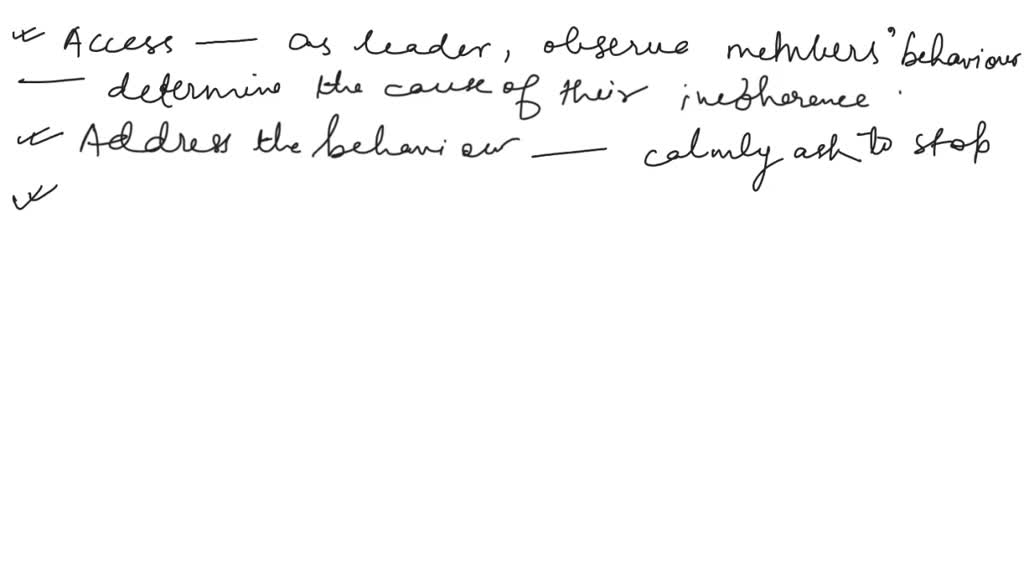 * Access — as leader, observe members' behaviour
— determine the cause of their incoherence.
* Address the behaviour — calmly ask to stop
*